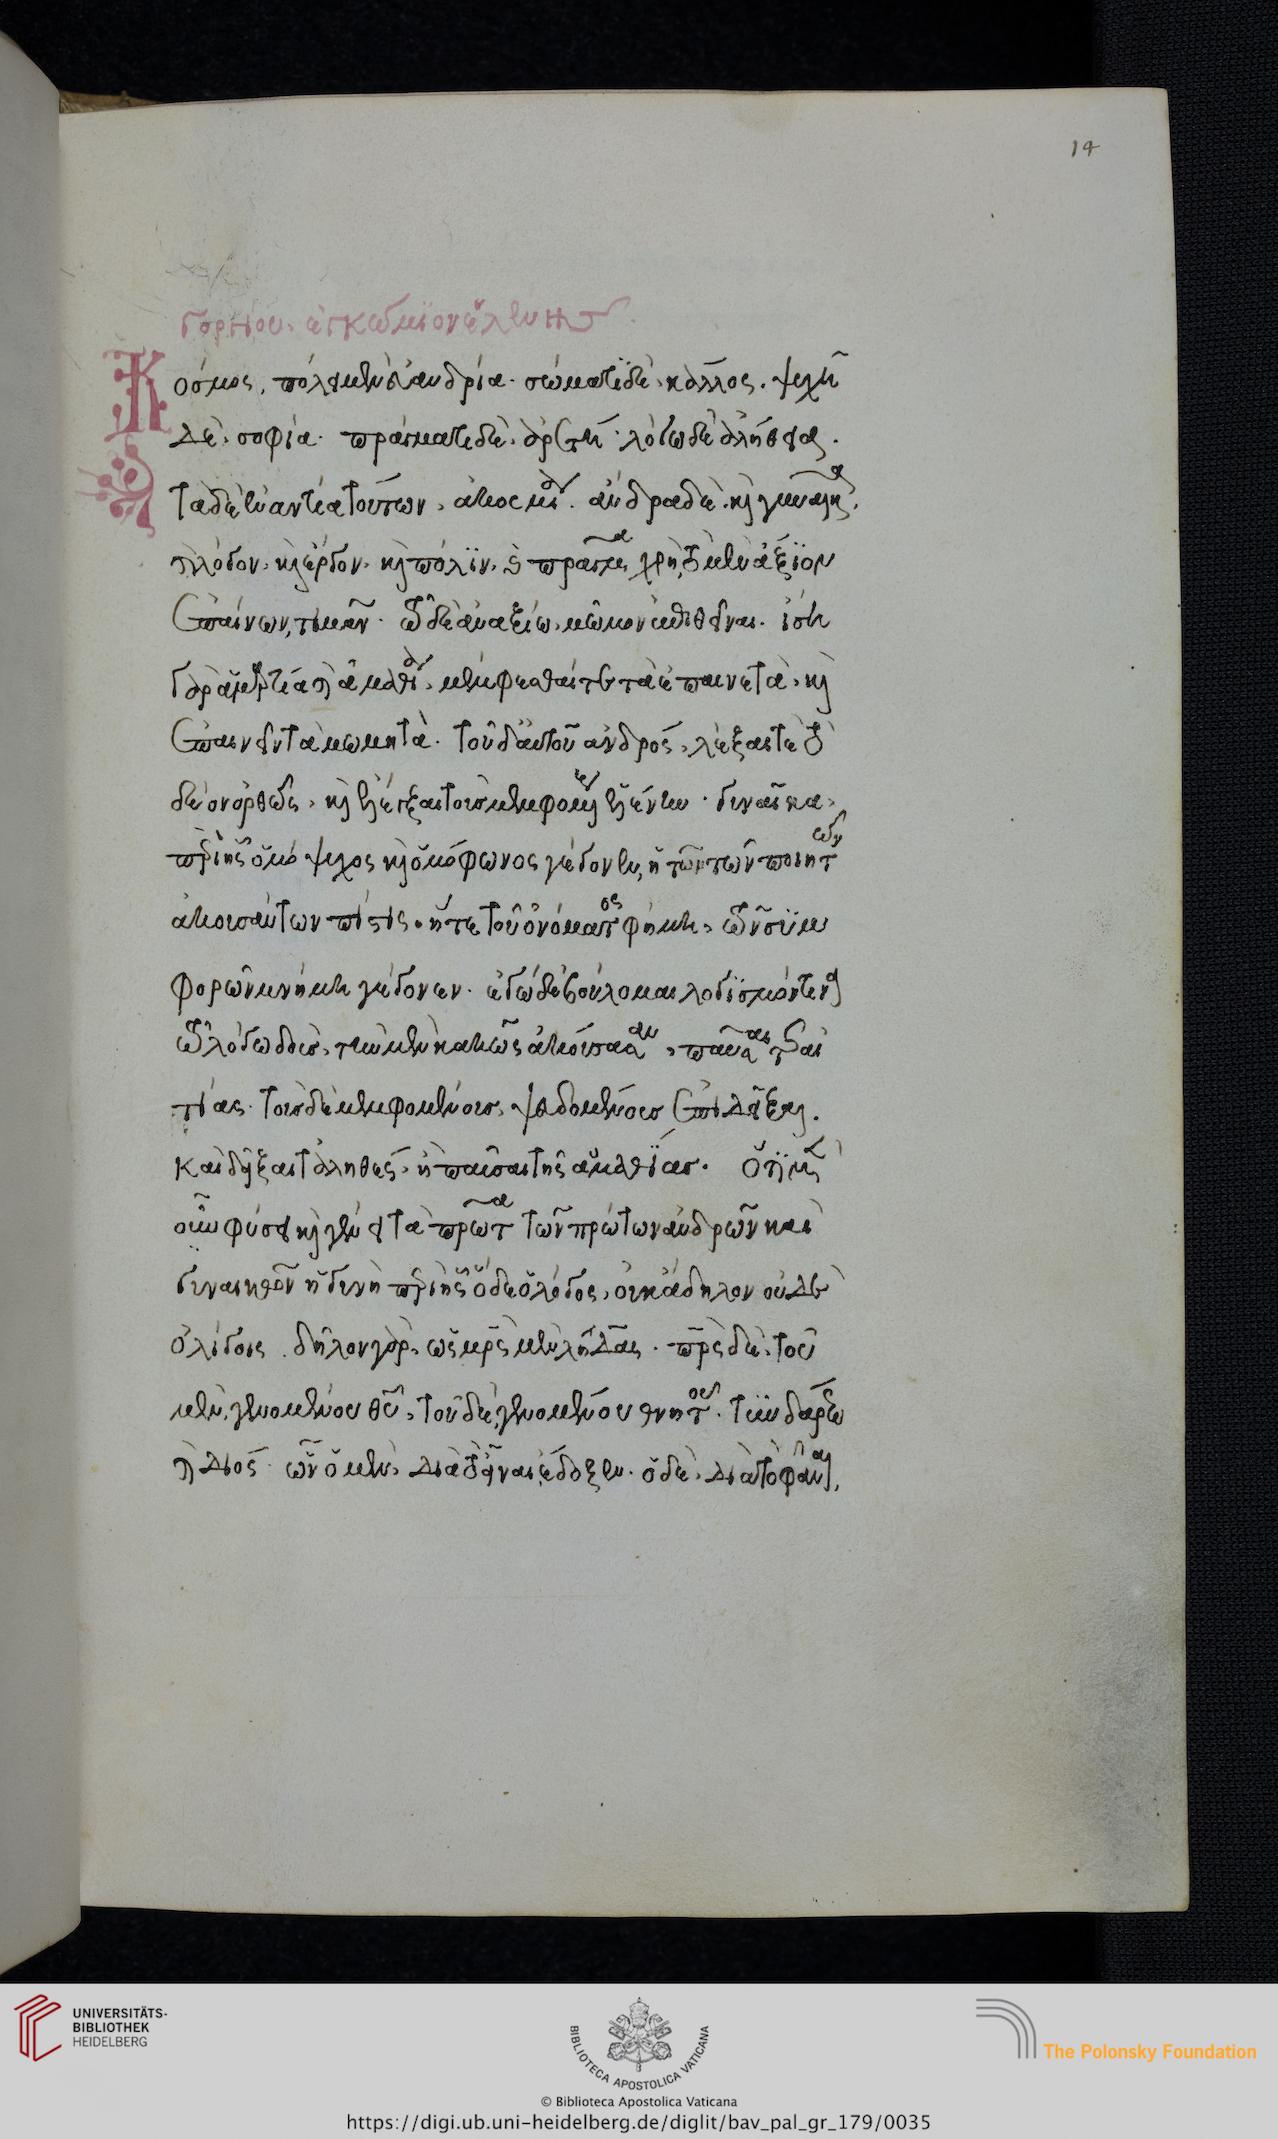 14
γοργίου ἐγκώμιον ἑλένης
Κόσμος, πόλει μὲν εὐανδρία· σώματι δὲ, κάλλος. ψυχῆ
δὲ, σοφία· πράγματι δὲ, ἀρετή· λόγω δὲ ἀλήθεια.
τὰ δὲ ἐναντία τούτων, ἀκοσμία. ἄνδρα δὲ, καὶ γυναῖκα,
καὶ λόγον, καὶ ἔργον, καὶ πόλιν, καὶ πρᾶγμα, χρὴ τὸ μὲν ἄξιον
ἐπαίνων, τιμᾶν· τῶ δὲ ἀναξίω, μῶμον ἐπιθεῖναι. ἴση
γὰρ ἁμαρτία καὶ ἀμαθία, μέμφεσθαί τε τὰ ἐπαινετὰ, καὶ
ἐπαινεῖν τὰ μωμητά. τοῦ δ' αὐτοῦ ἀνδρὸς, λέξαι τε τὸ
δέον ὀρθῶς, καὶ ἐλέγξαι τοὺς μεμφομένους ἑλένην· γυναῖκα
περὶ ἧς ὁμόψυχος καὶ ὁμόφωνος γέγονεν, ἥ τε τῶν ποιητῶν
ἀκουσάντων πίστις, ἥ τε τοῦ ὀνόματος φήμη, ὃ τῶν συμ
φορῶν μνήμη γέγονεν. ἐγὼ δὲ βούλομαι λογισμόν τινα
τῶ λόγω δοὺς, τὴν μὲν κακῶς ἀκούουσαν, παῦσαι τῆς αἰ
τίας· τοὺς δὲ μεμφομένους, ψευδομένους ἐπιδεῖξαι.
καὶ δεῖξαι τἀληθὲς, ἢ παῦσαι τῆς ἀμαθίας. ὅτι μὲν
οὖν φύσει καὶ γένει τὰ πρῶτα τῶν πρώτων ἀνδρῶν καὶ
γυναικῶν ἡ γυνὴ περὶ ἧς ὅδε ὁ λόγος, οὐκ ἄδηλον οὐδὲ
ὀλίγοις. δῆλον γὰρ, ὡς μητρὸς μὲν λήδας. πατρὸς δὲ, τοῦ
μὲν γενομένου θεοῦ, τοῦ δὲ, γενομένου θνητοῦ. τυνδάρεω
καὶ διὸς· ὧν ὁ μὲν, διὰ τὸ εἶναι, ἔδοξεν. ὁ δὲ, διὰ τὸ φάναι,
UNIVERSITÄTS-
BIBLIOTHEK
HEIDELBERG
BIBLIOTECA APOSTOLICA VATICANA
The Polonsky Foundation
© Biblioteca Apostolica Vaticana
https://digi.ub.uni-heidelberg.de/diglit/bav_pal_gr_179/0035